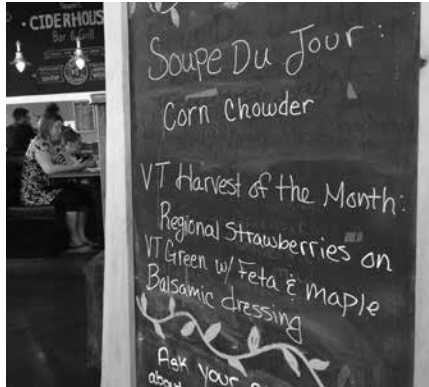 CIDERHOUSE
Bar & Grill
Soupe Du Jour:
Corn Chowder
VT Harvest of the Month:
Regional Strawberries on
VT Green w/ Feta & maple
Balsamic dressing
Ask your
about